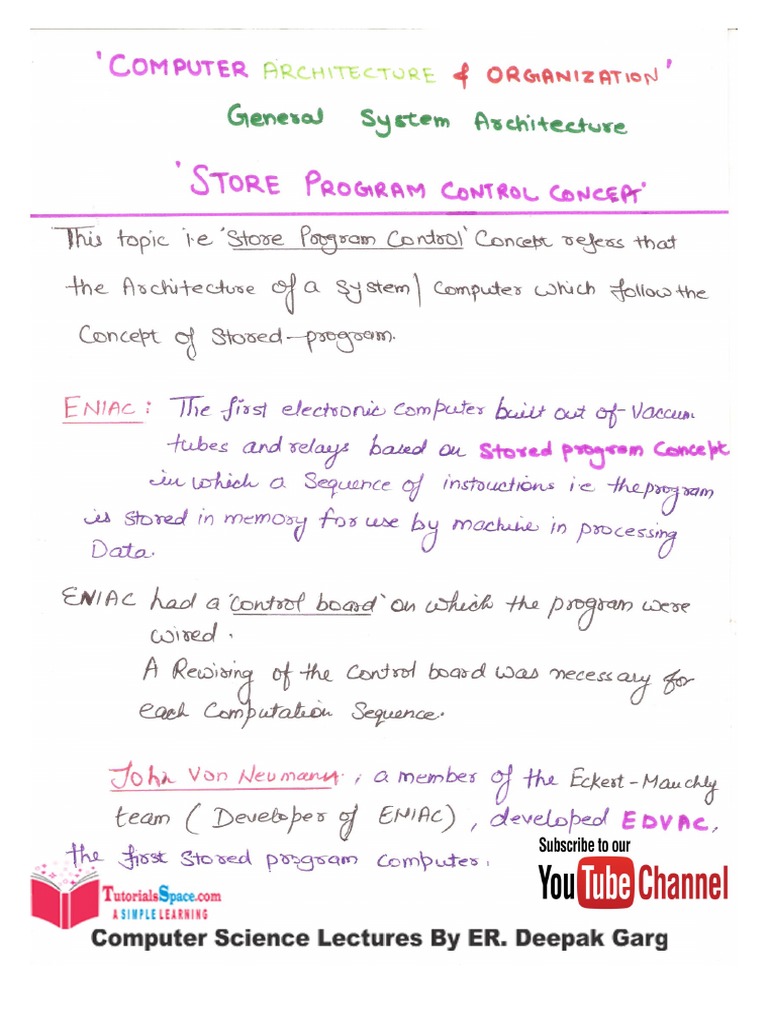 'COMPUTER ARCHITECTURE & ORGANIZATION'
General System Architecture
'STORE PROGRAM CONTROL CONCEPT'
This topic i.e 'Store Program Control' Concept refers that
the Architecture of a system/ Computer which follow the
Concept of Stored-program.
ENIAC: The first electronic computer built out of Vaccum
tubes and relays based on Stored program Concept
in which a Sequence of instructions i.e the program
is stored in memory for use by machine in processing
Data.
ENIAC had a 'control board' on which the program were
wired.
A Rewiring of the Control board was necessary for
each Computation Sequence.
John Von Neumann, a member of the Eckert-Mauchly
team (Developer of ENIAC), developed EDVAC,
the first stored program computer.
Subscribe to our
YouTube Channel
TutorialsSpace.com
A SIMPLE LEARNING
Computer Science Lectures By ER. Deepak Garg